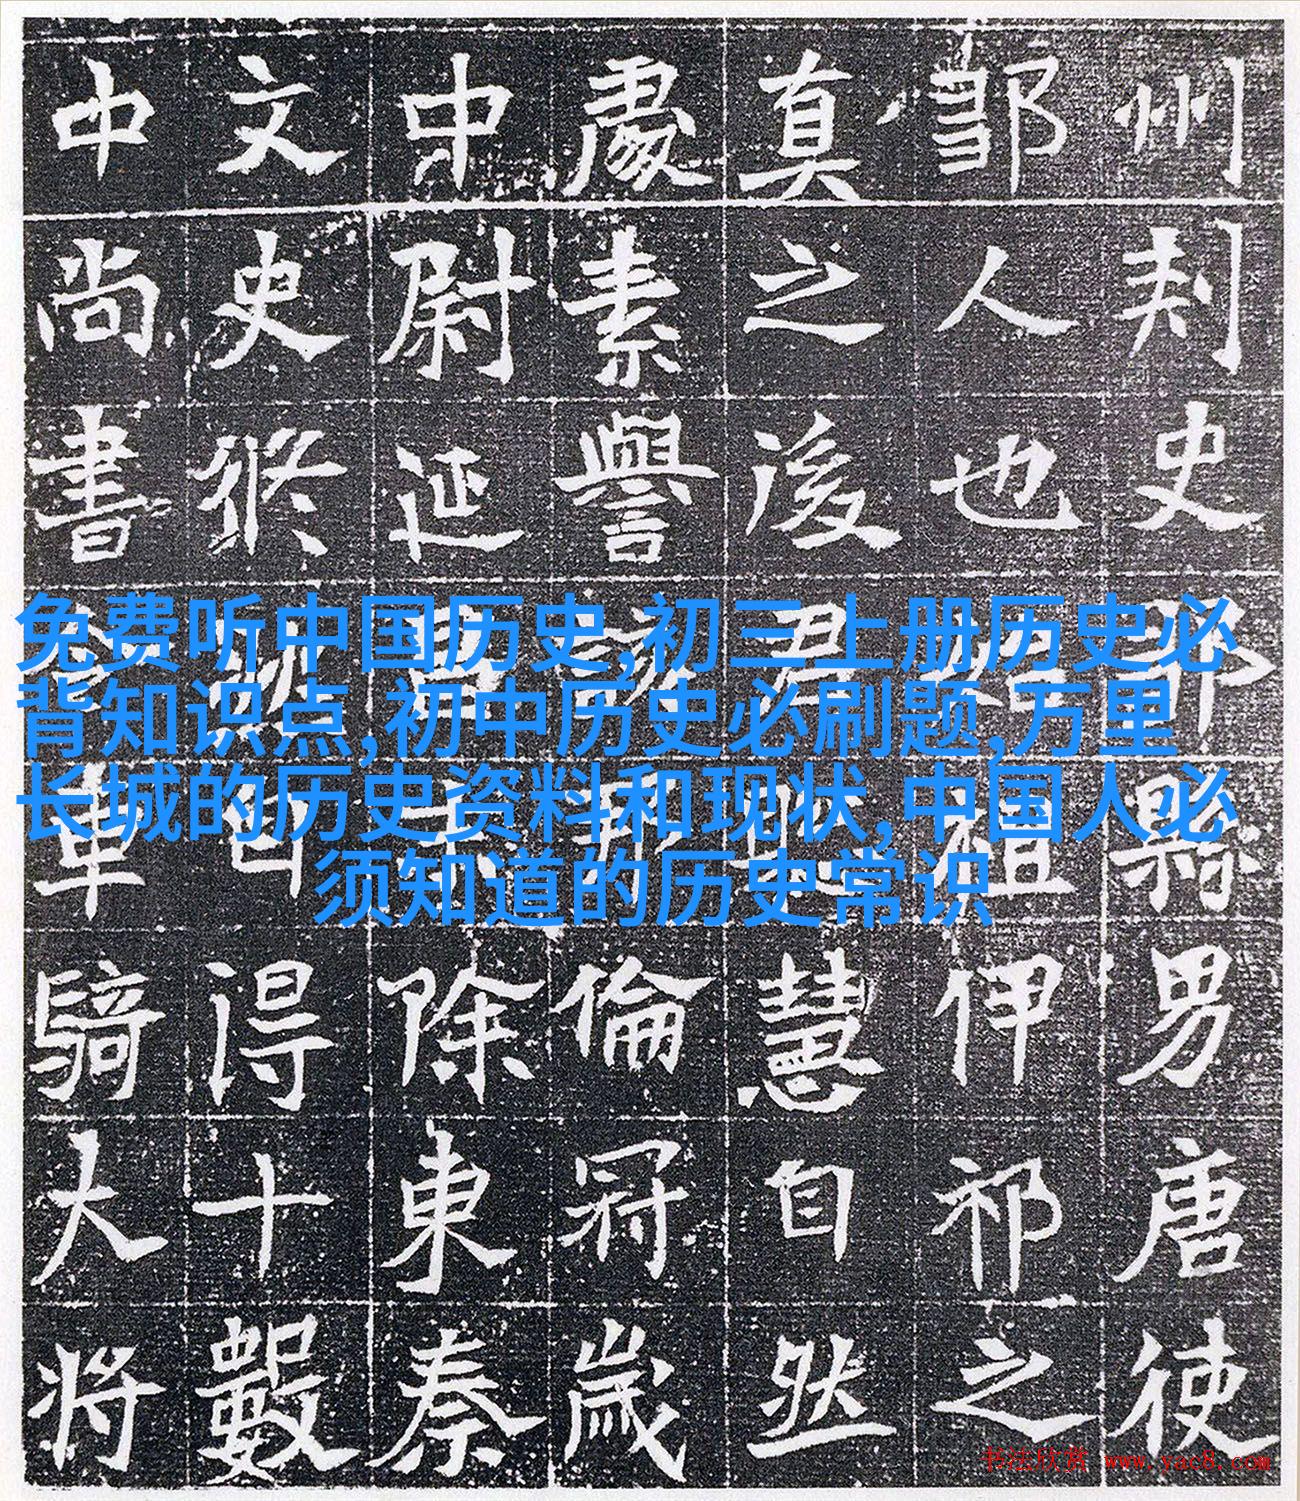 州刺史縣男唐使
鄒人也伊祁之
真之後君慧自然
處素譽倫冠歲
中尉延除東秦
文史脩得十數
中尚書車騎大將
免费听中国历史,初三上册历史必
背知识点,初中历史必刷题,万里
长城的历史资料和现状,中国人必
须知道的历史常识
书法欣赏 www.yac8.com